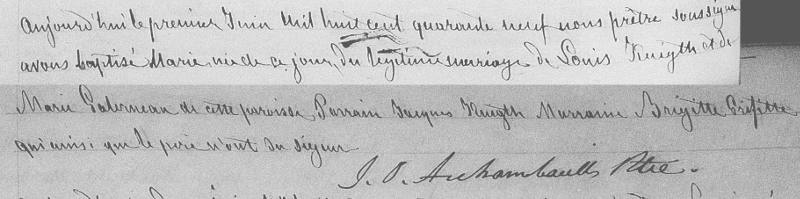 Aujourd'hui le premier Juin Mil huit cent quarante neuf nous prêtre soussigné
avons baptisé Marie, née de ce jour, du légitime mariage de Louis Knigth et de
Marie Galerneau de cette paroisse, Parrain Jacques Knigth Marraine Brigitte
qui ainsi que le père n'ont su signer
J. O. Archambault Ptre.